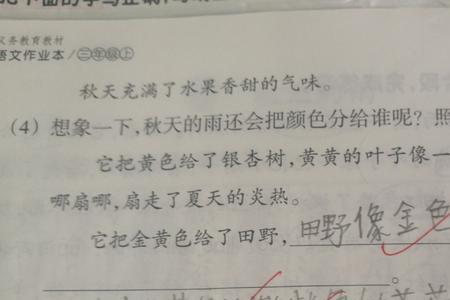 义务教育教材
语文作业本/三年级上
秋天充满了水果香甜的气味。
(4) 想象一下,秋天的雨还会把颜色分给谁呢?照
它把黄色给了银杏树,黄黄的叶子像一
哪扇哪,扇走了夏天的炎热。
它把金黄色给了田野,田野像金色